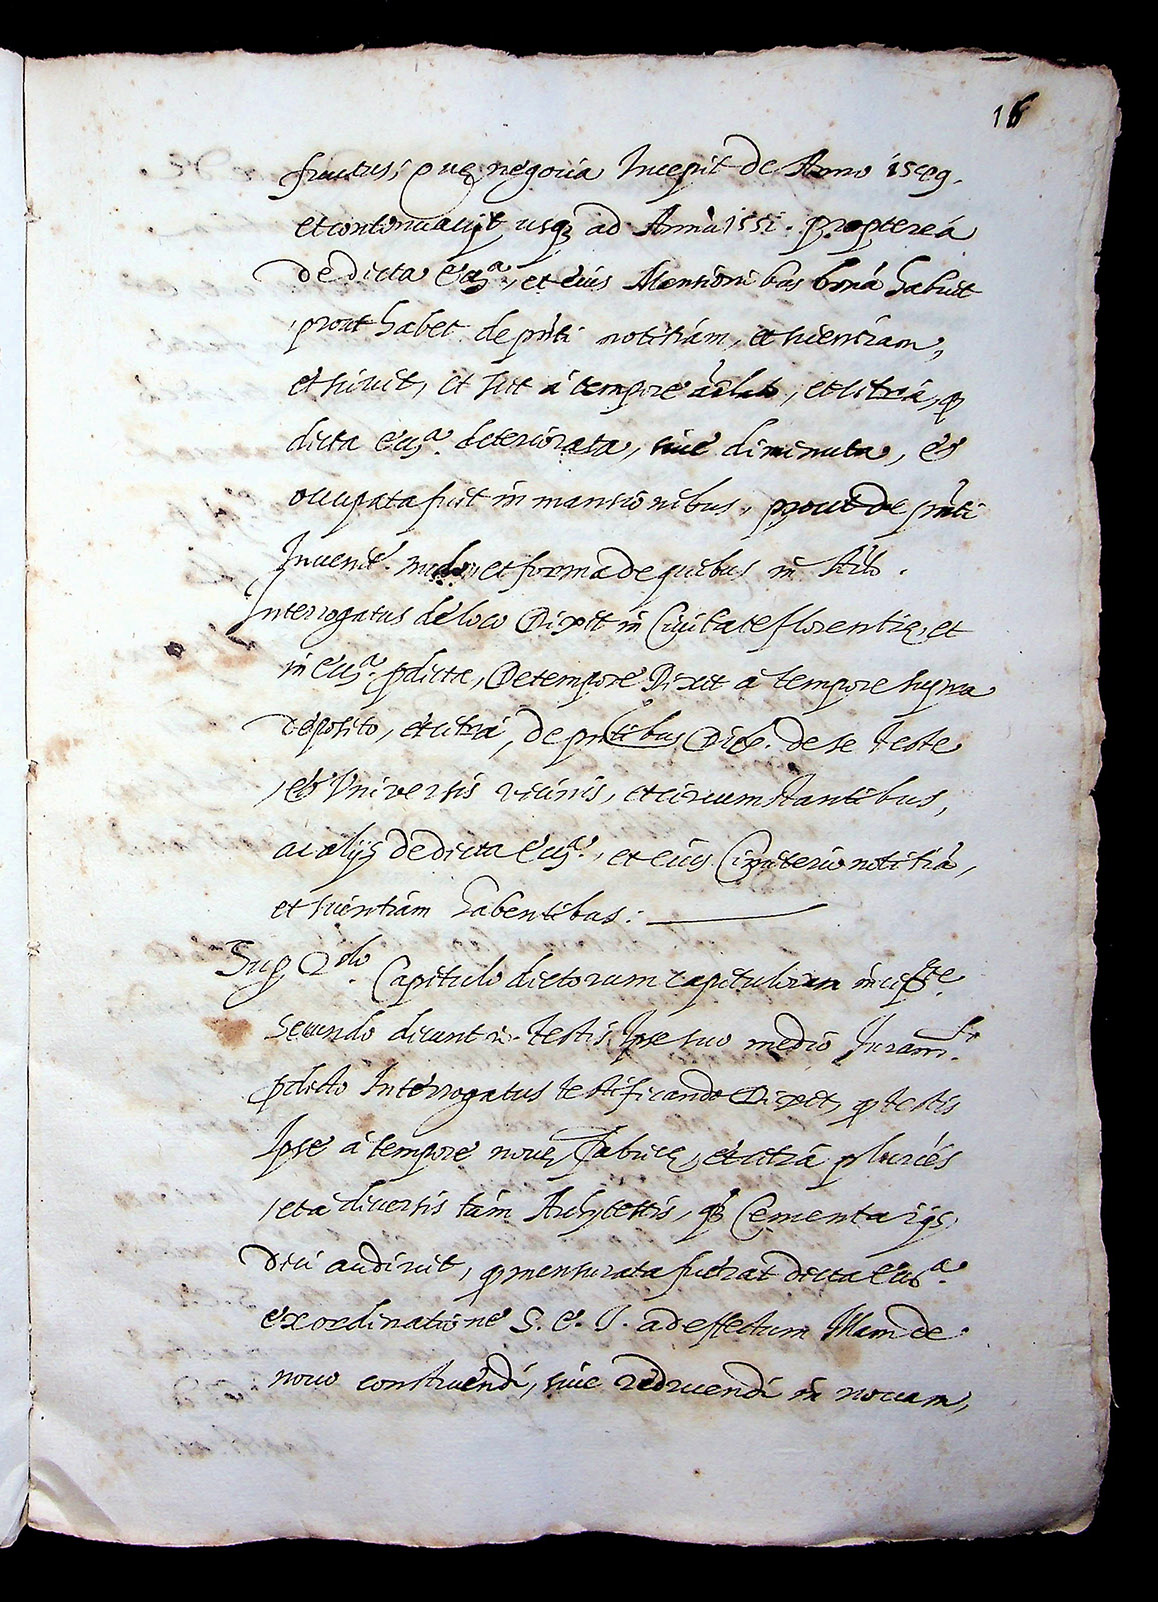 16
fructus, que negocia Incepit de Anno 1549.
et continuavit usq ad Annũ 1551. propterea
de dicta Ecc.ª, et eius Mansionibus bonã habuit
prout habet de pñti notitiam, et scientiam,
et scivit, et scit à tempore, et citrà, q
dicta Ecc.ª deteriorata, sive diminuta, et
occupata fuit in mansionibus, prout de pñti
modo, et forma de quibus in
Interrogatus de loco Dixit in Civitate florentię, et
in Ecc.ª pdicta, De tempore Dixit à tempore supra
deposito, et citrà, de pñtibus Dix. de se teste
et Vniversis vicinis, et circumstantibus,
ac alijs de dicta Ecc.ª, et eius Cimiterio notitiã,
et scientiam habentibus:
Sup 2.do Capitulo dictorum capitulorum
Secundo dicunt testis Ipse suo medio Iuram.to
pdicto Interrogatus testificando Dixit, q testis
Ipse à tempore novę fabricę, et citrà pluries
et à diversis tàm Architettis, q̃ Cementarijs,
dici audivit, q mensurata fuerat dicta Ecc.ª
ex ordinatione S. E. I. ad effectum Illam de
novo construendi, sive reducendi in novam,